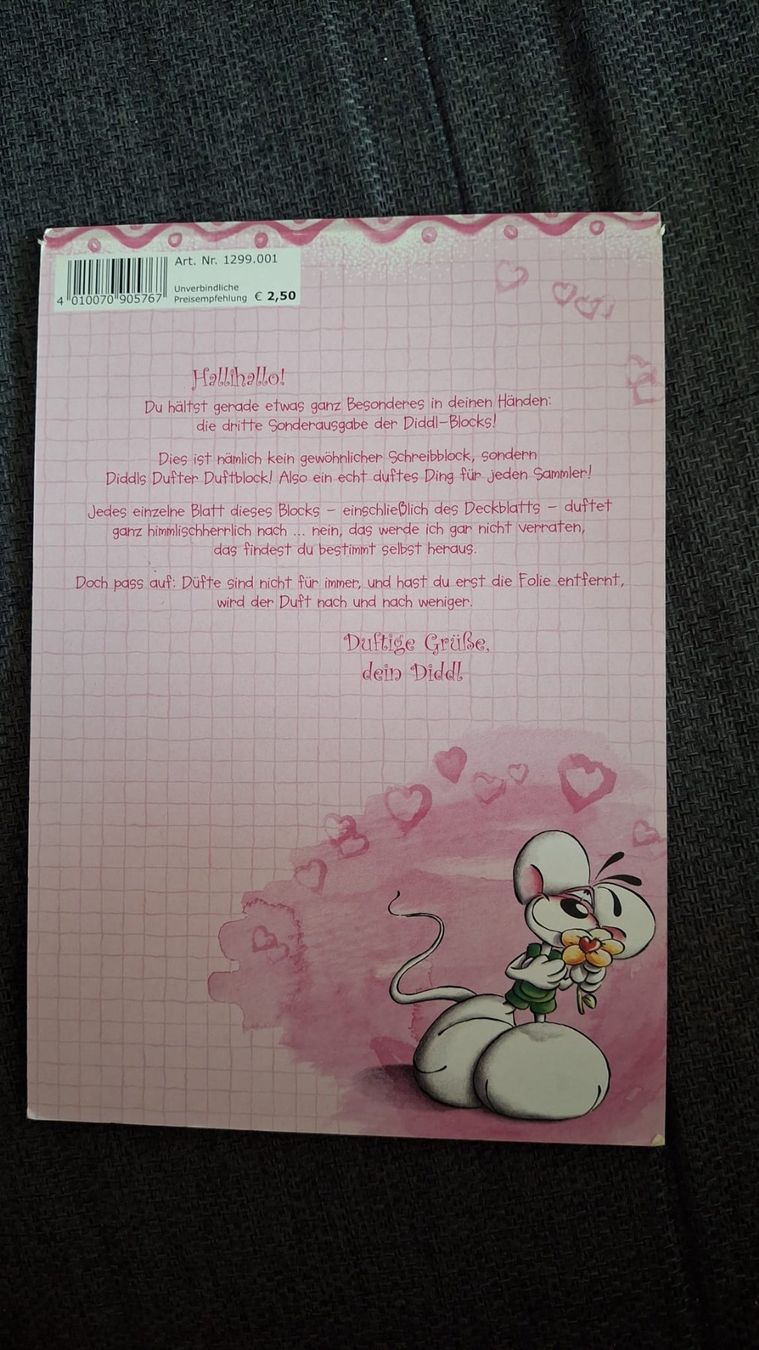 Art. Nr. 1299.001
4 010070 905767
Unverbindliche
Preisempfehlung € 2,50
Hallihallo!
Du hältst gerade etwas ganz Besonderes in deinen Händen:
die dritte Sonderausgabe der Diddl-Blocks!
Dies ist nämlich kein gewöhnlicher Schreibblock, sondern
Diddls Dufter Duftblock! Also ein echt duftes Ding für jeden Sammler!
Jedes einzelne Blatt dieses Blocks – einschließlich des Deckblatts – duftet
ganz himmlischherrlich nach ... nein, das werde ich gar nicht verraten,
das findest du bestimmt selbst heraus.
Doch pass auf: Düfte sind nicht für immer, und hast du erst die Folie entfernt,
wird der Duft nach und nach weniger.
Duftige Grüße,
dein Diddl